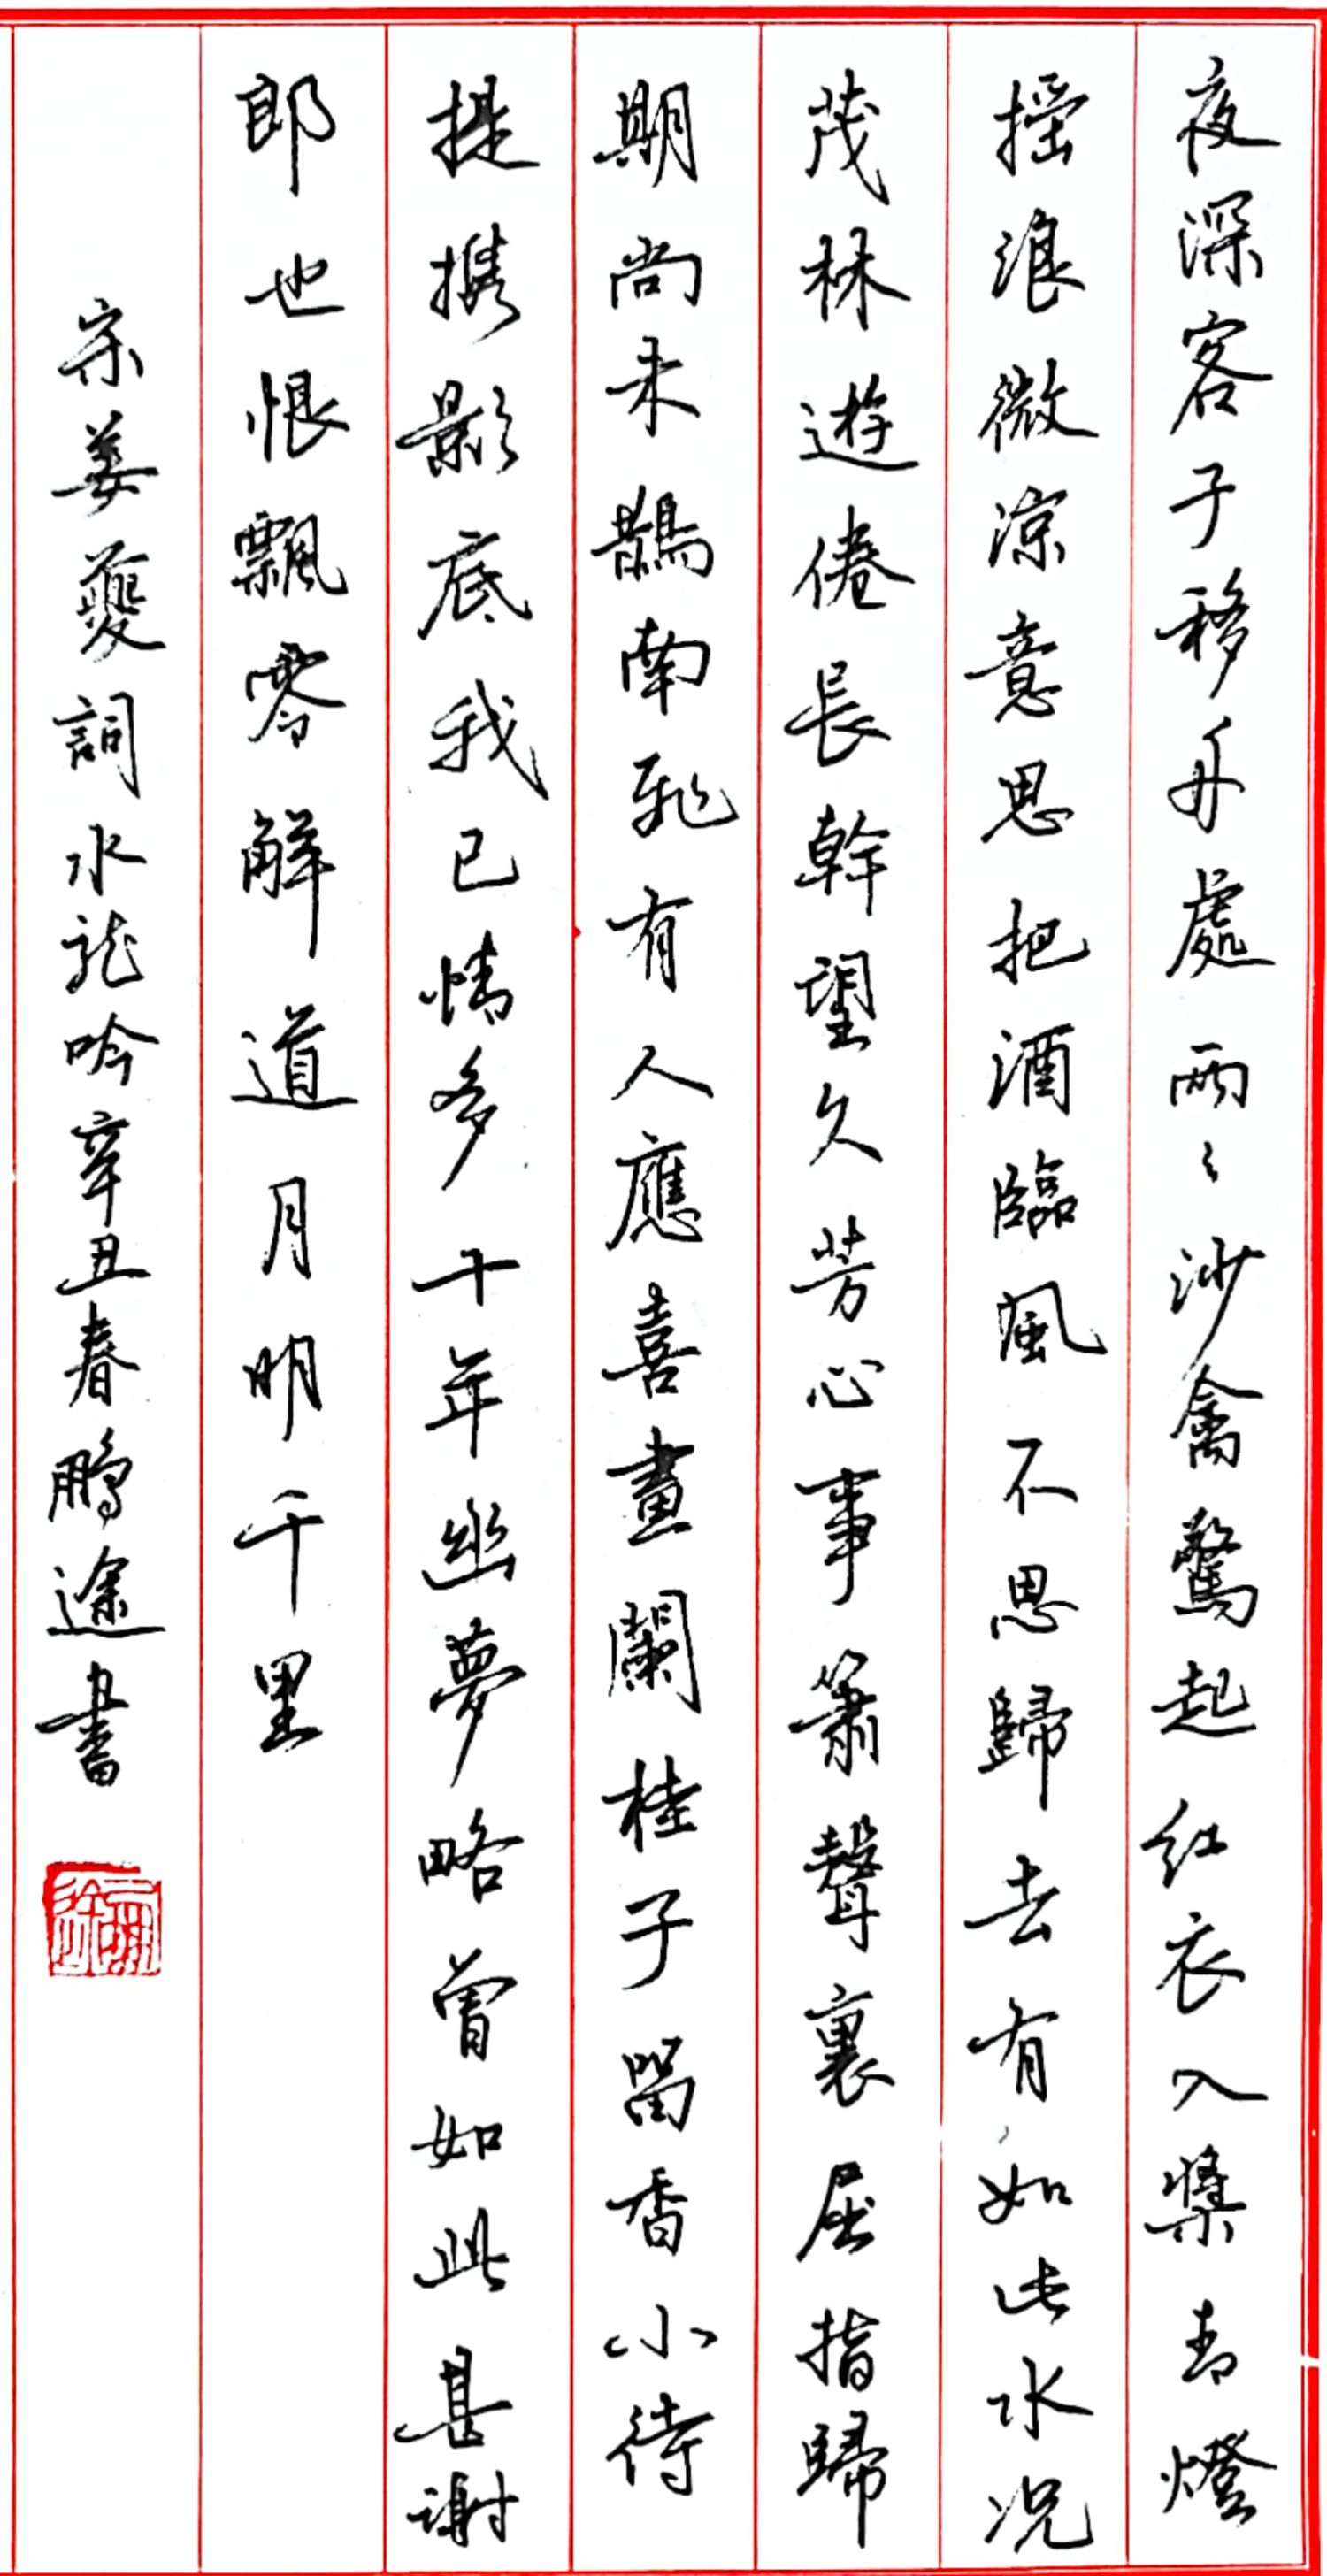 夜深客子移舟處兩々沙禽驚起紅衣入槳青燈
搖浪微涼意思把酒臨風不思歸去有如此水况
茂林遊倦長幹望久芳心事簫聲裏屈指歸
期尚未鵲南飛有人應喜畫闌桂子留香小待
提攜影底我已情多十年幽夢略曾如此甚謝
郎也恨飄零解道月明千里
宗姜夔詞水龍吟辛丑春鵬途書